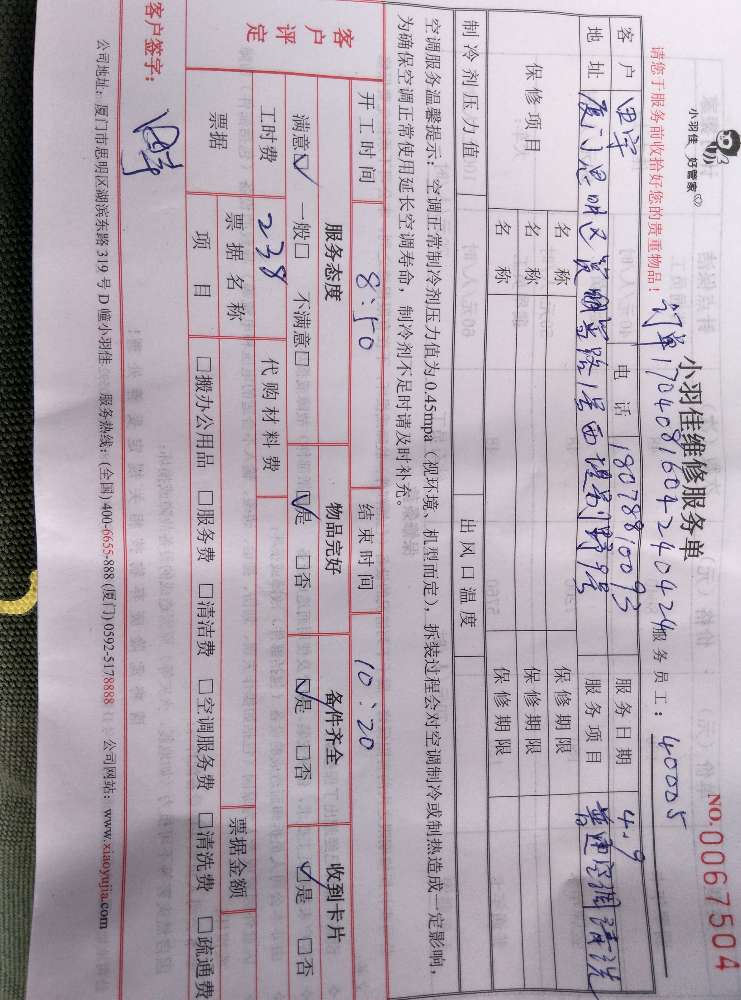 小羽佳 好管家
NO.0067504
小羽佳维修服务单
订单1704081604240424
请您于服务前收拾好您的贵重物品！ 服务员工：40005
客户 电话 18078810093 服务日期 4.9
地址 厦门思明区 服务项目 普通空调清洗
保修项目 名称 保修期限
名称 保修期限
名称 保修期限
制冷剂压力值 出风口温度
空调服务温馨提示：空调正常制冷剂压力值为0.45mpa（视环境、机型而定），拆装过程会对空调制冷或制热造成一定影响，
为确保空调正常使用延长空调寿命，制冷剂不足时请及时补充。
开工时间 8:50 结束时间 10:20
客户评定 服务态度 物品完好 备件齐全 收到卡片
满意☑ 一般□ 不满意□ ☑是 □否 ☑是 □否 ☑是 □否
工时费 238 代购材料费
票据 票据名称 票据金额
项目 □搬办公用品 □服务费 □清洁费 □空调服务费 □清洗费 □疏通费
客户签字：
公司地址：厦门市思明区湖滨东路319号D幢小羽佳 服务热线：(全国) 400-6655-888 (厦门) 0592-5178888 公司网站：www.xiaoyujia.com